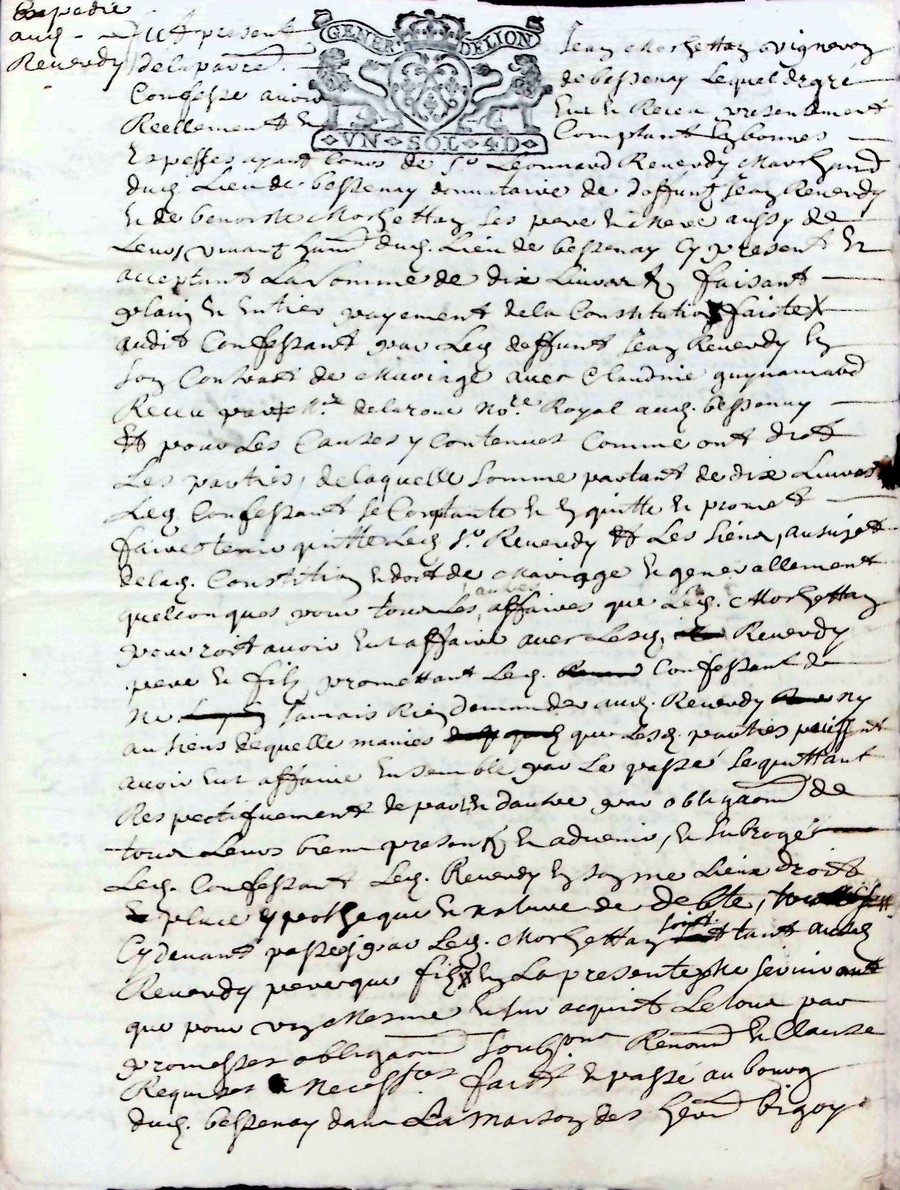 Expedie
aud.
Reverdy
GENER. DE LION
VN · SOL · 4D ·
fut present Jean Mochettan vigneron
de la parre. de bessenay Lequel de gré
Confesse avoir Eut et Receu presentement
Reellement et Comptant En bonnes
Espesses ayant Cours de Sr. Leonnard Reverdy Marchand
dud. Lieu de bessenay donnataire de deffunt Jean Reverdy
et de benoiste Mochettan ses pere et Mere aussy de
Leur vivant dud. Lieu de bessenay Cy present et
acceptant La Somme de dix Livres Et faisant
plain et Entier payement de la Constitution faiste
audit Confessant par Led. deffunt Jean Reverdy En
son Contrat de Mariage avec Claudine guynamard
Receu par Me. delaroue Nore. Royal aud. bessenay
Et pour Les Causes y Contenues Comme ont dict
Les parties, de laquelle somme partant de dix Livres
Led. Confessant se Contante et En quitte et promet
faire tenir quitte Led. Sr. Reverdy Et Les Siens, au sujet
de lad. Constitution En dot de Mariage et generallement
quelconques pour tous Les autres affaires que Led. Mochettan
pourroit avoir Eut affaire avec Lesd. Reverdy
pere et fils promettant Led. Confessant de
ne Jamais Rien demander aud. Reverdy ny
au siens de quelle manies que Lesd. parties puissent
avoir Eut affaire Ensemble par Le passé se quittant
Respectifvement de part et dautre par obligaon de
tous Leurs biens presents et advenir, et subrogé
Led. Confessant Led. Reverdy En son me Lieux droits
place ypotheque et nature de debte,
Cy devant passées par Led. Mochettan soit tant aud.
Reverdy pere que fils Et La presente ne serviront
que pour un Mesme Et sur acquit Le tout par
promesses obligaon Soubzons Renoaon et Clause
Requises Necessres faict et passé au bourg
dud. bessenay dans La maison des bigoy